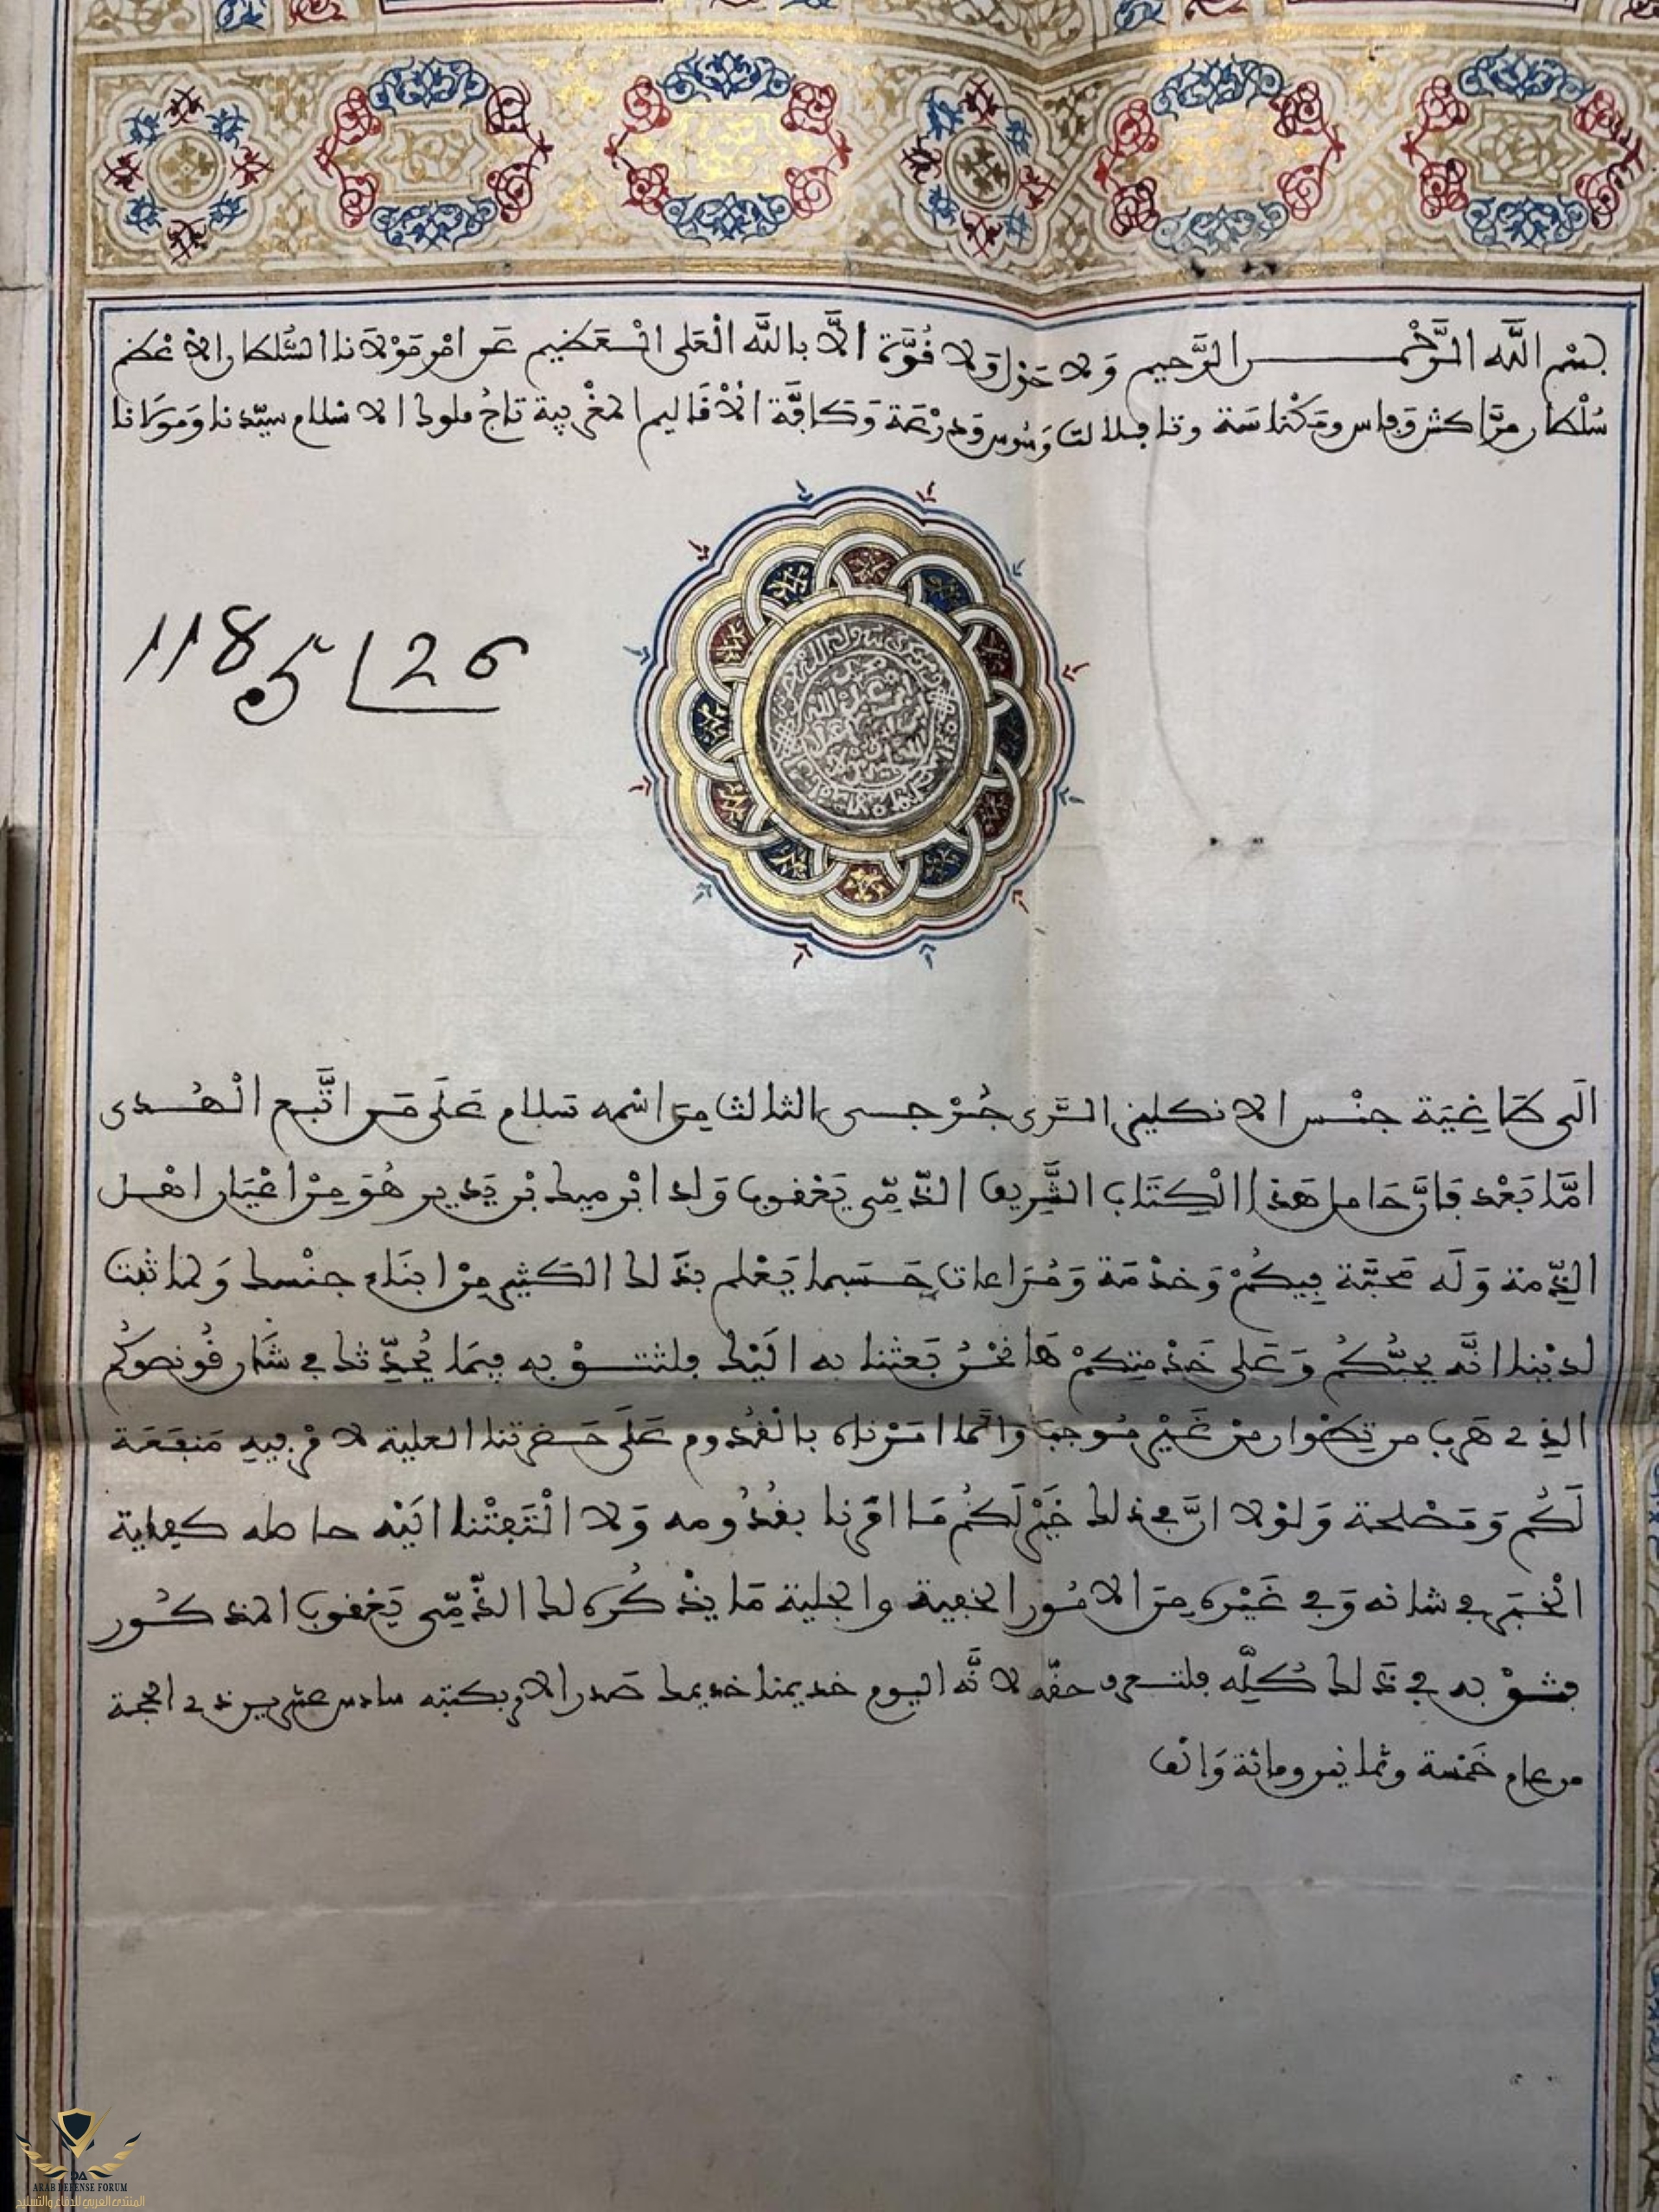 بسم الله الرحمن الرحيم ولا حول ولا قوة الا بالله العلي العظيم عن امر مولانا السلطان الاعظم
سلطان مراكش وفاس ومكناسة وتافيلالت وسوس ودرعة وكافة الأقاليم المغربية تاج ملوك الاسلام سيدنا ومولانا
1185
26
محمد
بن عبد الله
الى طاغية جنس الانكليز الري جورجس الثالث من اسمه سلام على من اتبع الهدى
اما بعد فان حامل هذا الكتاب الشريف الذمي يعقوب ولد ابرميط بن يدير هو من اعيان اهل
الذمة وله محبة فيكم وخدمة ومراعات حسبما يعلم بذلك الكثير من ابناء جنسك ولما ثبت
لدينا انه يحبكم وعلى خدمتكم ها نحن بعثنا به اليك فلتثق به فيما يحدثك في شان قونصوكم
الذي هرب من تطوان من غير موجب وانما امرناه بالقدوم على حضرتنا العلية لامر فيه منفعة
لكم ومصلحة ولولا ان في ذلك خير لكم ما امرنا بقدومه ولا التفتنا اليه حاطه كفاية
الخبر في شانه وفي غيره من الامور الخفية والجلية ما يذكره لك الذمي يعقوب المذكور
فثق به في ذلك كله فلتعرف حقه لانه اليوم خديمنا خديمك صدر الامر بكتبه سادس عشرين ذي الحجة
من عام خمسة وثمانين ومائة والف
ARAB DEFENSE FORUM
المنتدى العربي للدفاع والتسليح